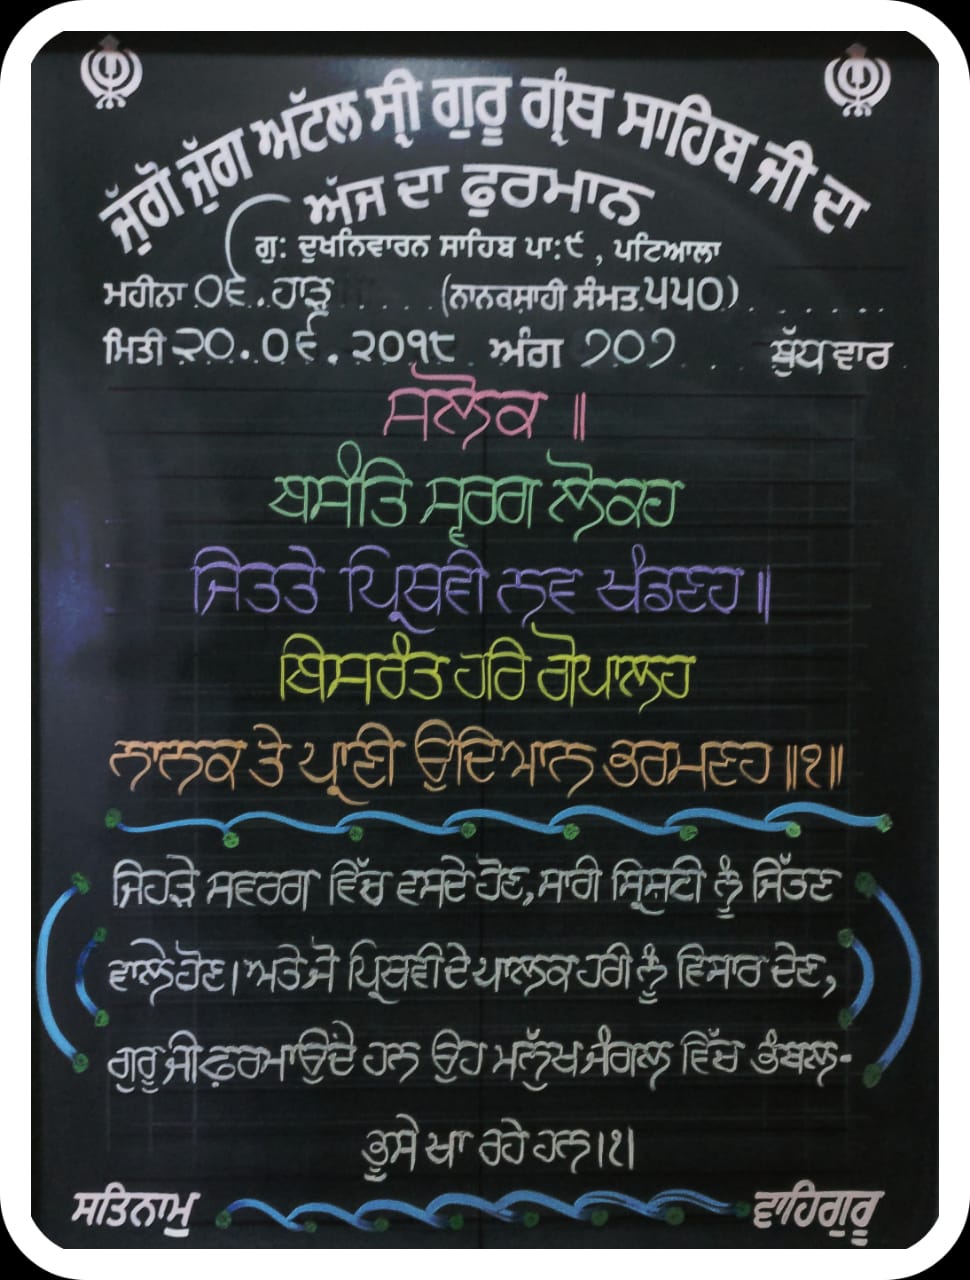 ਜੁੱਗੋ ਜੁੱਗ ਅੱਟਲ ਸ੍ਰੀ ਗੁਰੂ ਗ੍ਰੰਥ ਸਾਹਿਬ ਜੀ ਦਾ
ਅੱਜ ਦਾ ਫੁਰਮਾਨ
ਗੁ: ਦੁਖਨਿਵਾਰਨ ਸਾਹਿਬ ਪਾ:੯ , ਪਟਿਆਲਾ
ਮਹੀਨਾ ੦੬.ਹਾੜ੍ਹ (ਨਾਨਕਸ਼ਾਹੀ ਸੰਮਤ.੫੫੦)
ਮਿਤੀ ੨੦.੦੬.੨੦੧੮ ਅੰਗ ੭੦੭ ਬੁੱਧਵਾਰ
ਸਲੋਕ ॥
ਬਸੰਤਿ ਸ੍ਵਰਗ ਲੋਕਹ
ਜਿਤਤੇ ਪ੍ਰਿਥਵੀ ਨਵ ਖੰਡਣਹ ॥
ਬਿਸਰੰਤ ਹਰਿ ਗੋਪਾਲਹ
ਨਾਨਕ ਤੇ ਪ੍ਰਾਣੀ ਉਦਿਆਨ ਭਰਮਣਹ ॥੧॥
ਜਿਹੜੇ ਸਵਰਗ ਵਿੱਚ ਵਸਦੇ ਹੋਣ, ਸਾਰੀ ਸ੍ਰਿਸ਼ਟੀ ਨੂੰ ਜਿੱਤਣ
ਵਾਲੇ ਹੋਣ। ਅਤੇ ਜੋ ਪ੍ਰਿਥਵੀ ਦੇ ਪਾਲਕ ਹਰੀ ਨੂੰ ਵਿਸਾਰ ਦੇਣ,
ਗੁਰੂ ਜੀ ਫ਼ਰਮਾਉਂਦੇ ਹਨ ਉਹ ਮਨੁੱਖ ਜੰਗਲ ਵਿੱਚ ਭੰਬਲ-
ਭੂਸੇ ਖਾ ਰਹੇ ਹਨ।੧।
ਸਤਿਨਾਮੁ ਵਾਹਿਗੁਰੂ